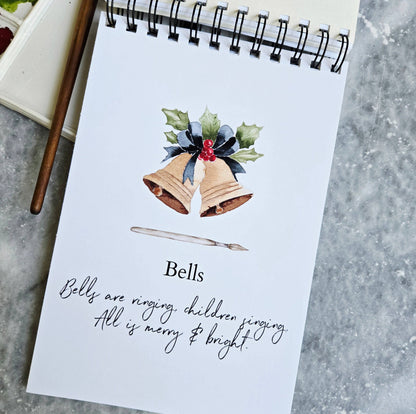 Bells
Bells are ringing, children singing
All is merry & bright.